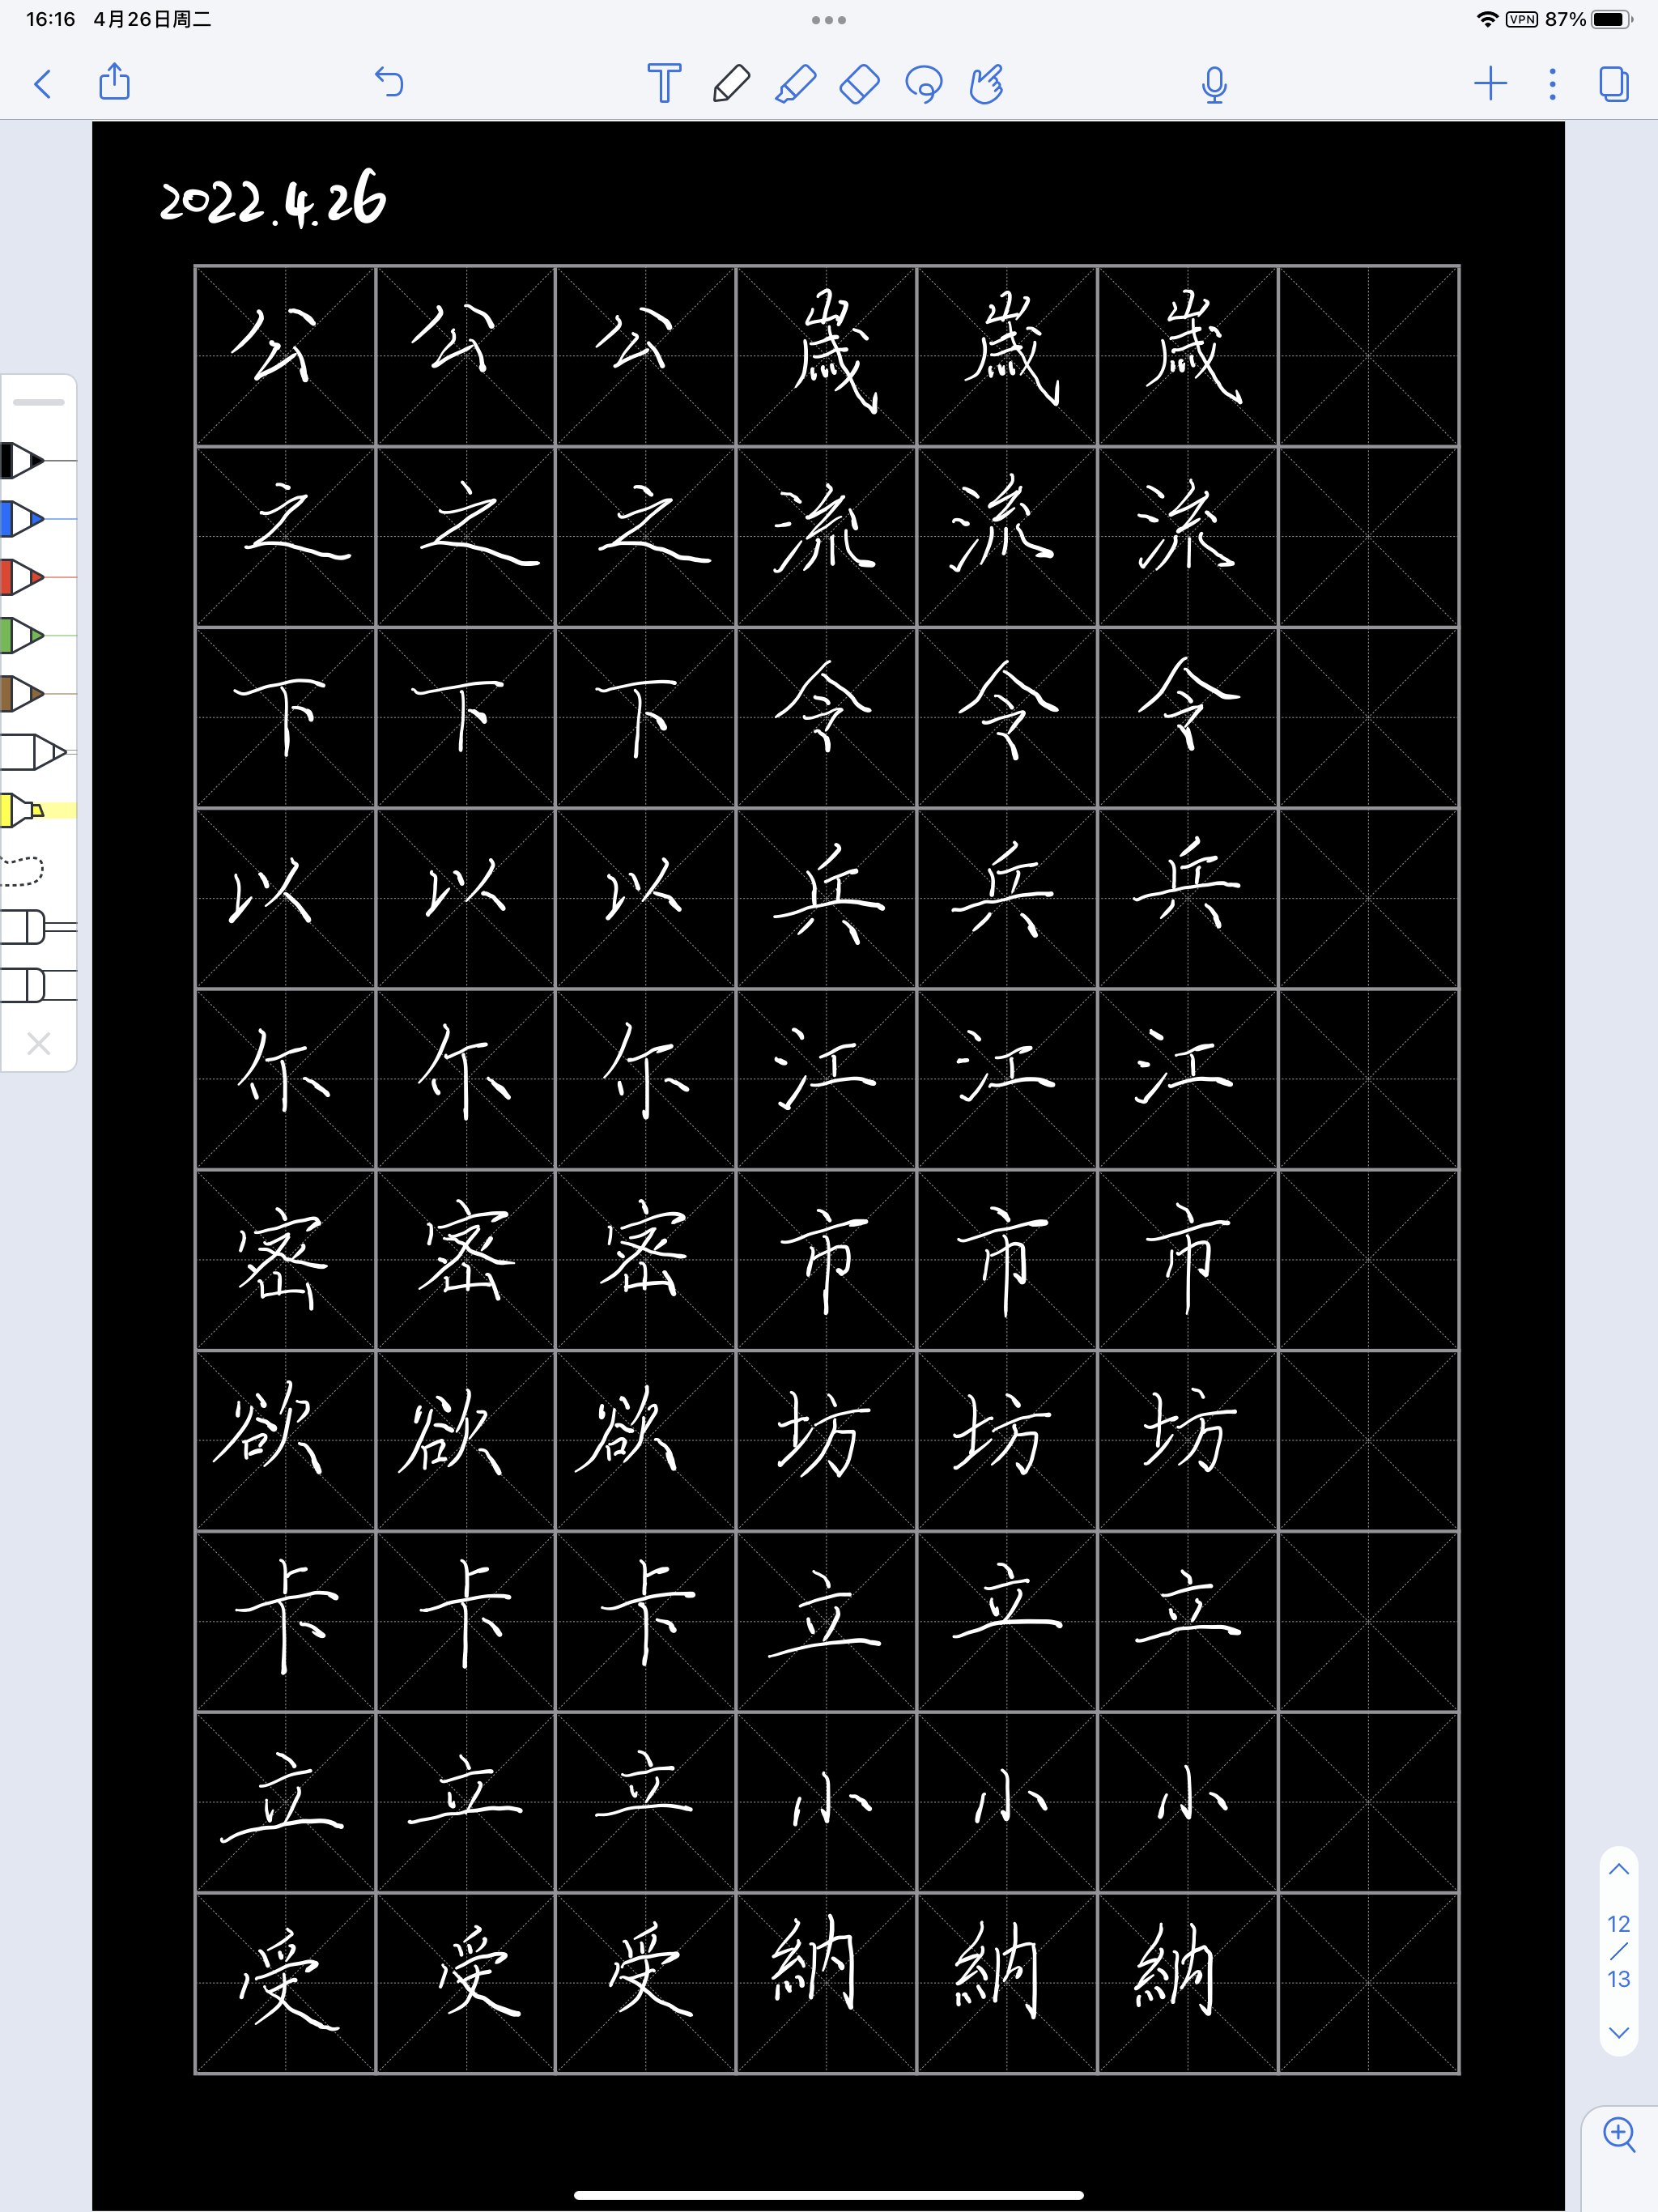 16:16 4月26日周二 VPN 87%
2022.4.26
公 公 公 歲 歲 歲
之 之 之 流 流 流
下 下 下 令 令 令
以 以 以 兵 兵 兵
你 你 你 江 江 江
密 密 密 市 市 市
欲 欲 欲 坊 坊 坊
卡 卡 卡 立 立 立
立 立 立 小 小 小
受 受 受 納 納 納
12
/
13